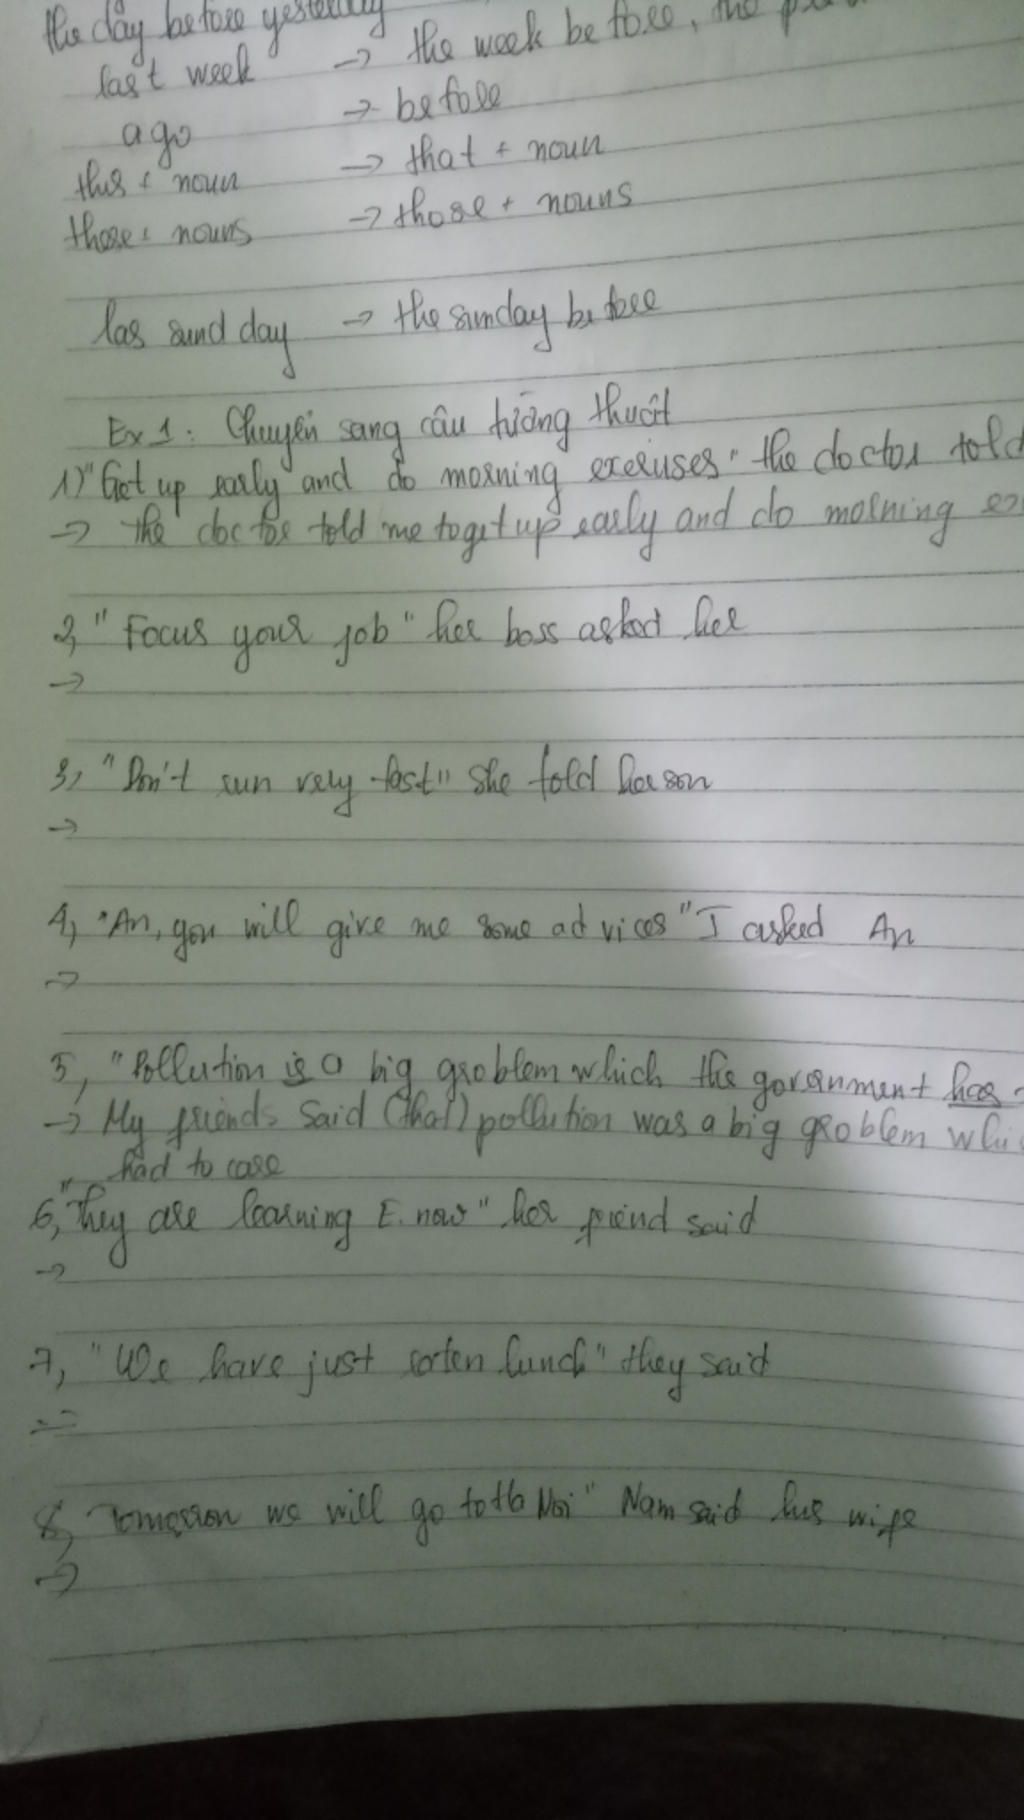 the day before yesterday
last week → the week before, the
ago → before
this + noun → that + noun
those + nouns → those + nouns
las sund day → the sunday before
Ex 1: Chuyển sang câu tường thuật
1) "Get up early and do morning exeruses" the doctor told
→ The doctor told me to get up early and do morning
2, "Focus your job" her boss asked her
→
3, "Don't run very fast" she told her son
→
4, "An, you will give me some advices" I asked An
→
5, "Pollution is a big problem which the government has
→ My friends said (that) pollution was a big problem
had to case
6, "They are learning E. now" her friend said
→
7, "We have just eaten lunch" they said
→
8, Tomorrow we will go to Noi" Nam said his wife
→